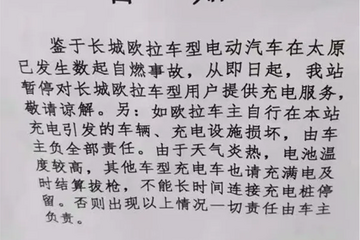 鉴于长城欧拉车型电动汽车在太原
已发生数起自燃事故，从即日起，我站
暂停对长城欧拉车型用户提供充电服务，
敬请谅解。另：如欧拉车主自行在本站
充电引发的车辆、充电设施损坏，由车
主负全部责任。由于天气炎热，电池温
度较高，其他车型充电车也请充满电及
时结算拔枪，不能长时间连接充电桩停
留。否则出现以上情况一切责任由车主
负责。